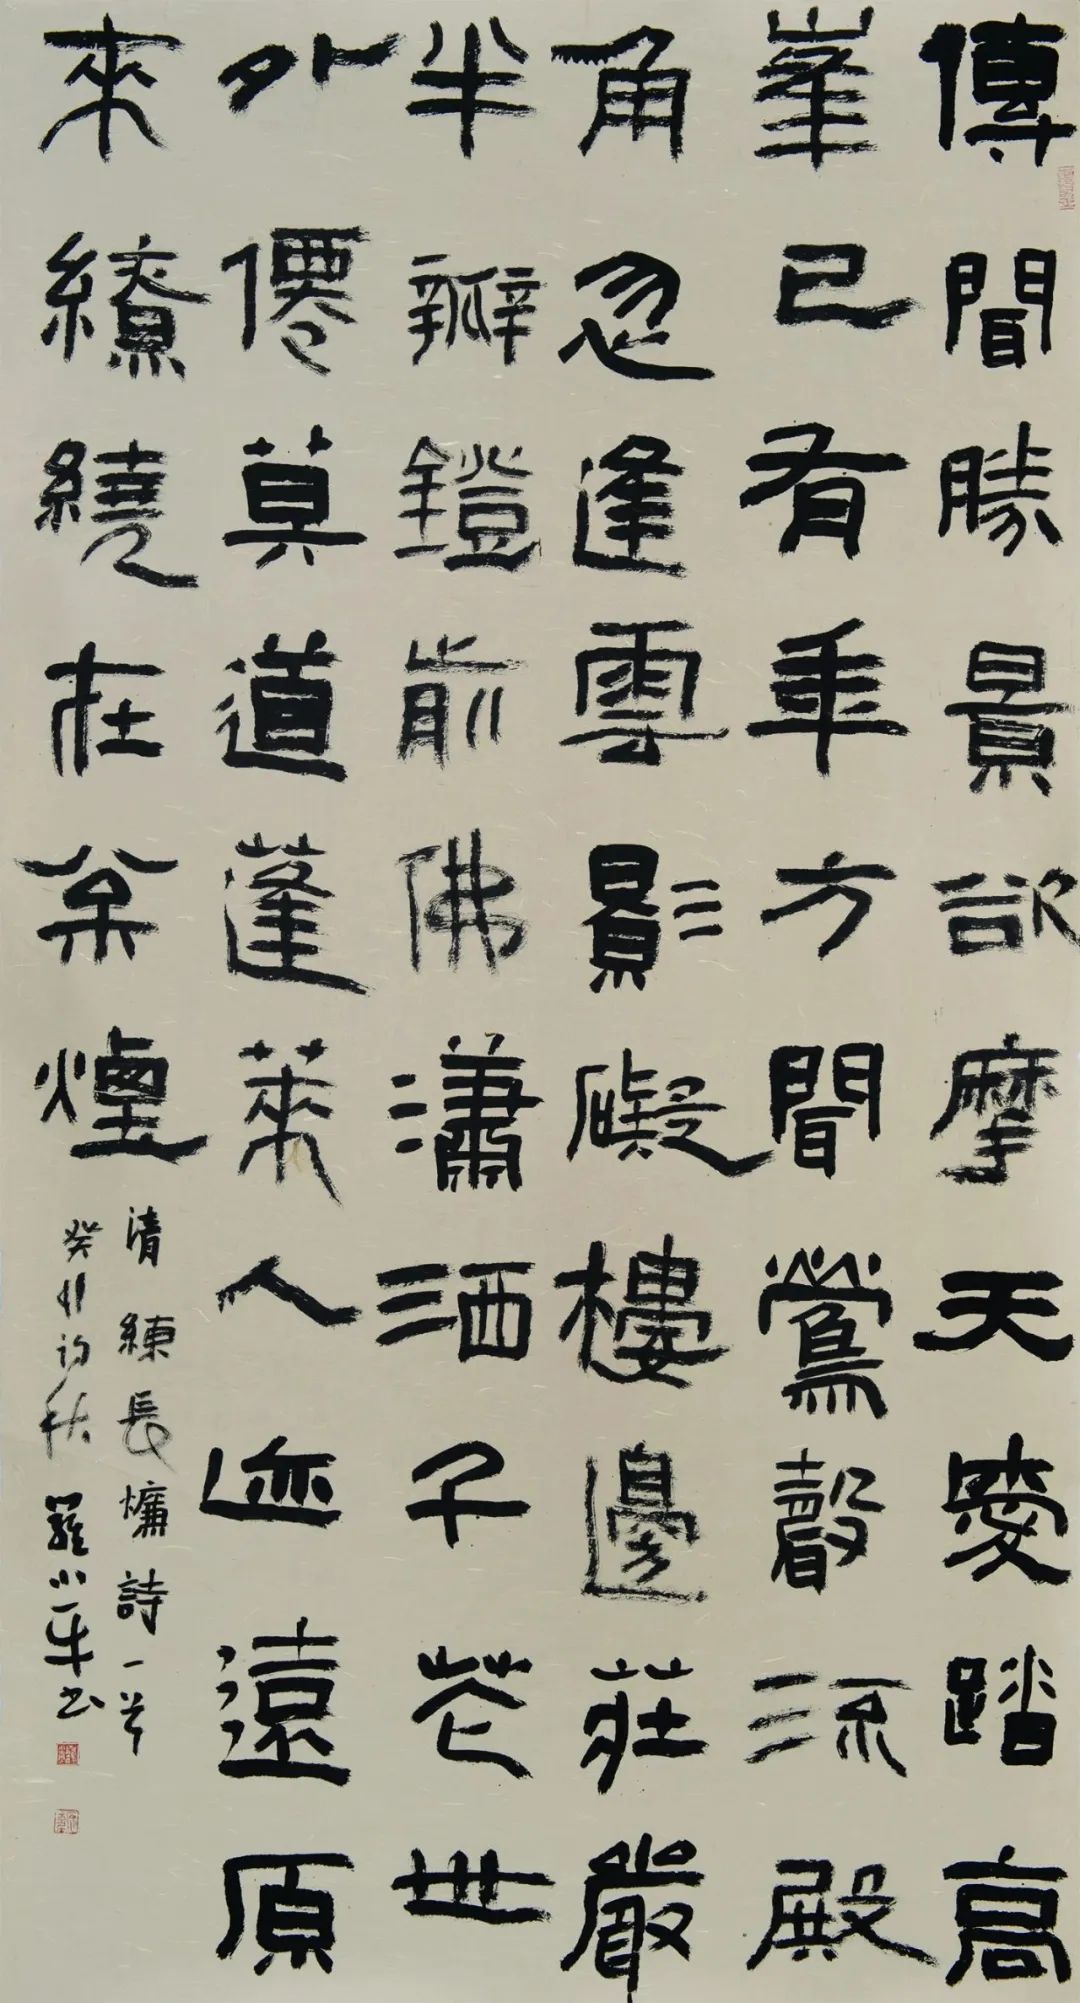 傳聞勝景欲摩天爱踏高
峯已有年方聞鶯聲流殿
角忽逢雲影礙樓邊莊嚴
半瓣鐙前佛瀟洒千花世
外僊莫道蓬萊人迹遠原
來繚繞在茶煙
清練長慵詩一首
癸卯初秋羅小平書